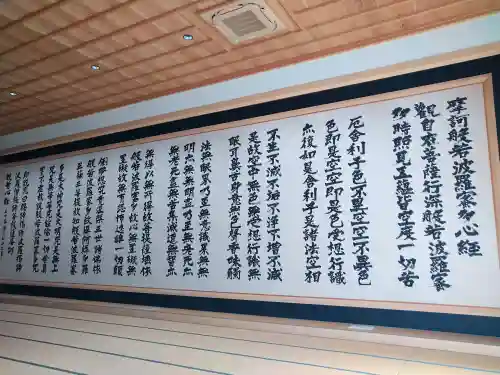 摩訶般若波羅蜜多心経
観自在菩薩行深般若波羅蜜
多時照見五蘊皆空度一切苦
厄舎利子色不異空空不異色
色即是空空即是色受想行識
亦復如是舎利子是諸法空相
不生不滅不垢不浄不増不減
是故空中無色無受想行識無
眼耳鼻舌身意無色声香味触
法無眼界乃至無意識界無無
明亦無無明尽乃至無老死亦
無老死尽無苦集滅道無智亦
無得以無所得故菩提薩埵依
般若波羅蜜多故心無罣礙無
罣礙故無有恐怖遠離一切顛
倒夢想究竟涅槃三世諸仏依
般若波羅蜜多故得阿耨多羅
三藐三菩提故知般若波羅蜜
多是大神呪是大明呪是無上
呪是無等等呪能除一切苦真
実不虚故説般若波羅蜜多呪
即説呪曰羯諦羯諦波羅羯諦
波羅僧羯諦菩提薩婆訶
般若心経